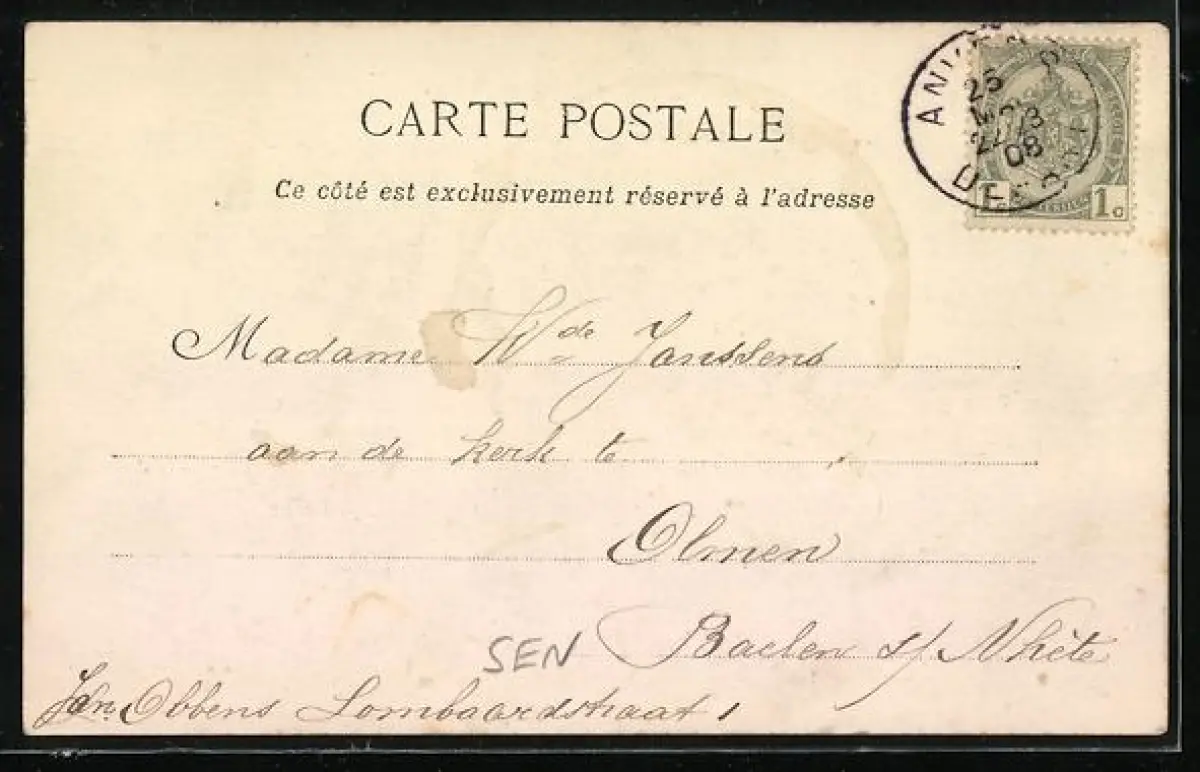 CARTE POSTALE
Ce côté est exclusivement réservé à l'adresse
25
22/3
08
1 1c
Madame Wde Janssens
aan de kerk te
Olmen
Baelen s/ Nhète
SEN
Jan Obbens Lombaardstraat 1